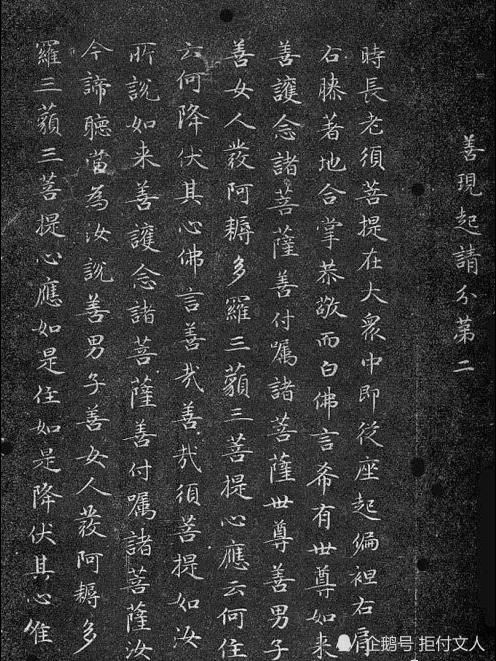 善現起請分第二
時長老須菩提在大衆中即從座起徧袒右肩
右膝著地合掌恭敬而白佛言希有世尊如来
善護念諸菩薩善付囑諸菩薩世尊善男子
善女人發阿耨多羅三藐三菩提心應云何住
云何降伏其心佛言善㦲善㦲須菩提如汝
所說如来善護念諸菩薩善付囑諸菩薩汝
今諦聽當為汝說善男子善女人發阿耨多
羅三藐三菩提心應如是住如是降伏其心惟
企鹅号 拒付文人